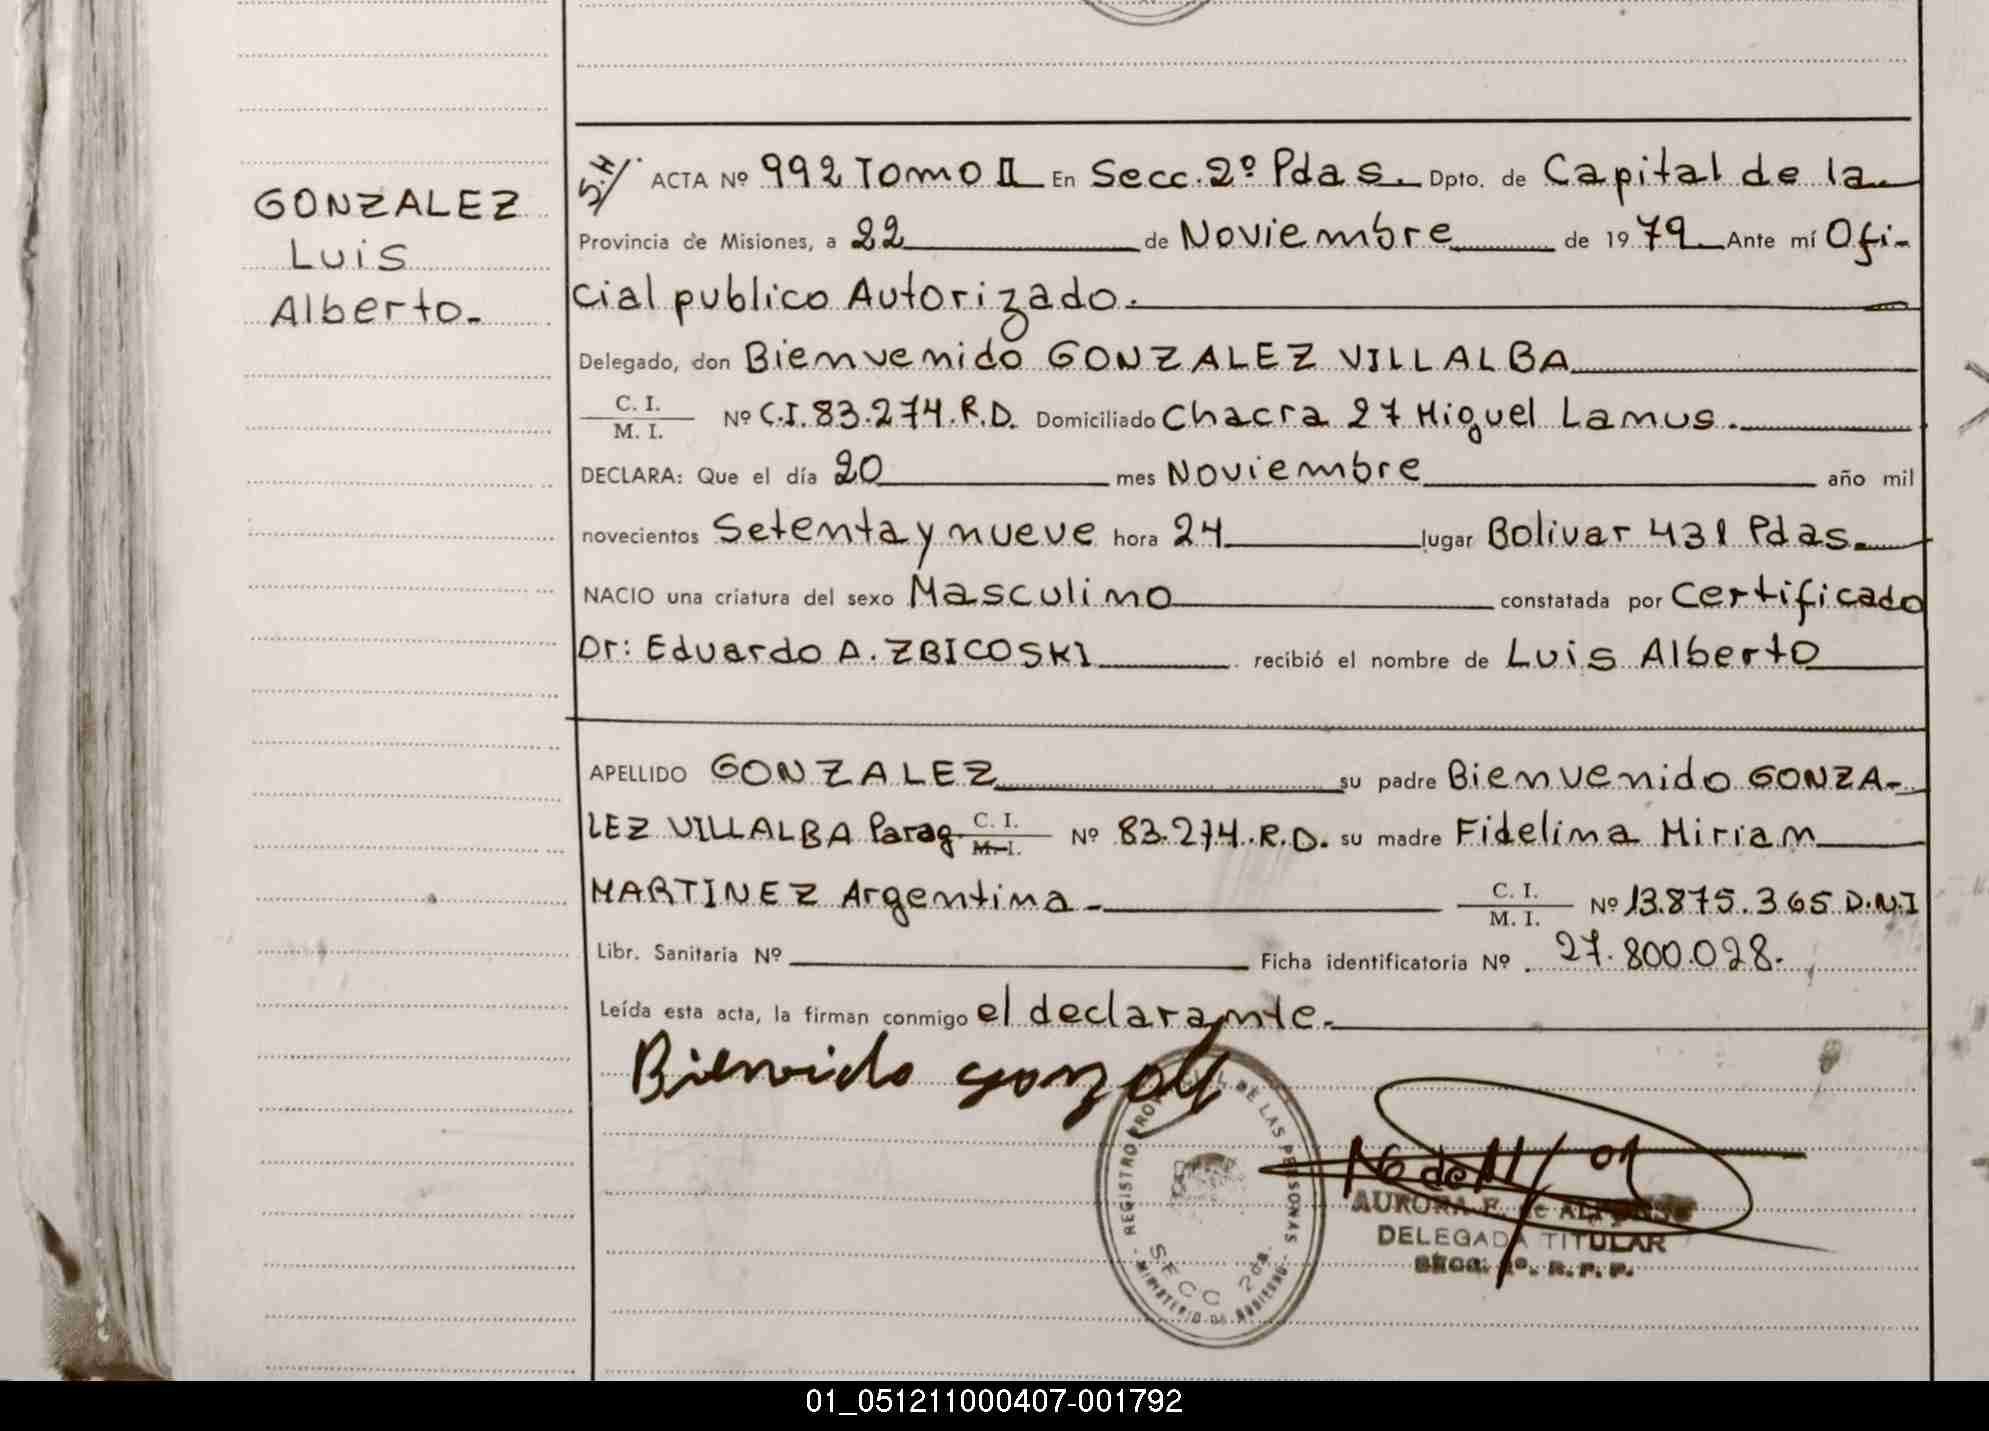 GONZALEZ
Luis
Alberto.
S.H/. ACTA Nº 992 Tomo II En Secc. 2º Pdas. Dpto. de Capital de la
Provincia de Misiones, a 22 de Noviembre de 1979 Ante mí Ofi-
cial publico Autorizado.
Delegado, don Bienvenido GONZALEZ VILLALBA
C. I.
M. I.
Nº C.I. 83.274.R.D. Domiciliado Chacra 27 Miguel Lamus.
DECLARA: Que el día 20 mes Noviembre año mil
novecientos Setenta y nueve hora 24 lugar Bolivar 431 Pdas.
NACIO una criatura del sexo Masculino constatada por Certificado
Dr: Eduardo A. ZBICOSKI recibió el nombre de Luis Alberto
APELLIDO GONZALEZ su padre Bienvenido GONZA-
LEZ VILLALBA Parag C. I. M. I. Nº 83.274.R.D. su madre Fidelina Miriam
MARTINEZ Argentina - C. I. M. I. Nº 13.875.365 D.N.I
Libr. Sanitaria Nº Ficha identificatoria Nº 27.800.028.
Leída esta acta, la firman conmigo el declarante.
Bienvido gonzalez
REGISTRO DE LAS PERSONAS
SECC 2da.
MINISTERIO DE GOBIERNO
AURORA F. de
DELEGADA TITULAR
R. P. P.
01_051211000407-001792